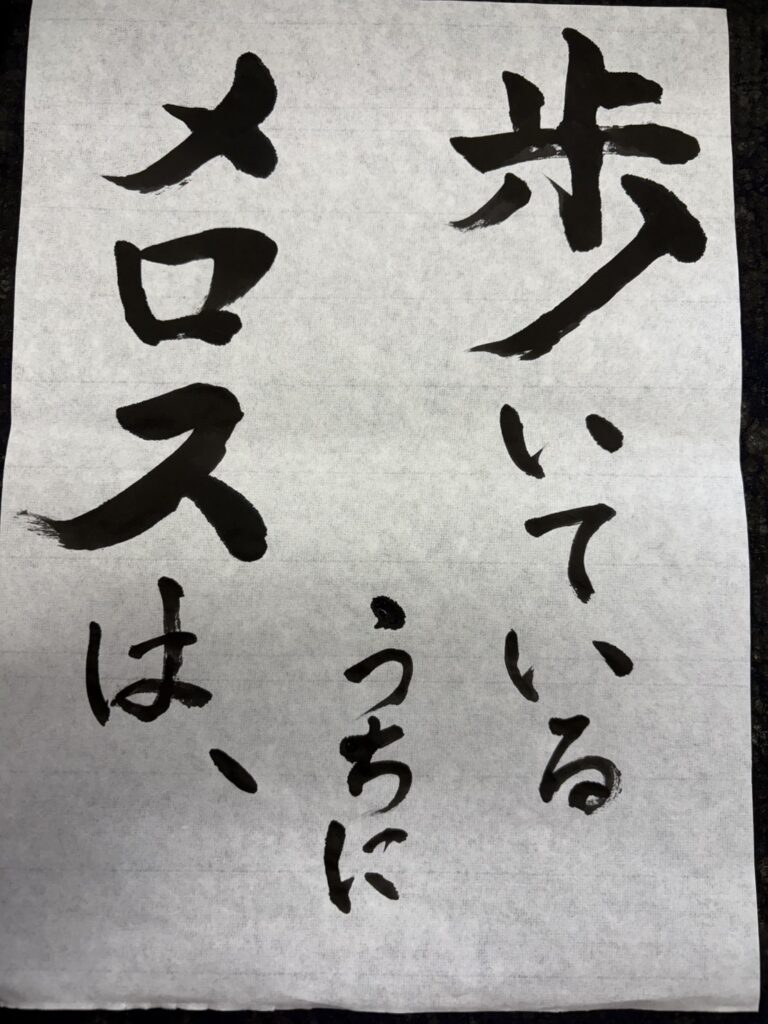 歩いている
うちに
メロスは、